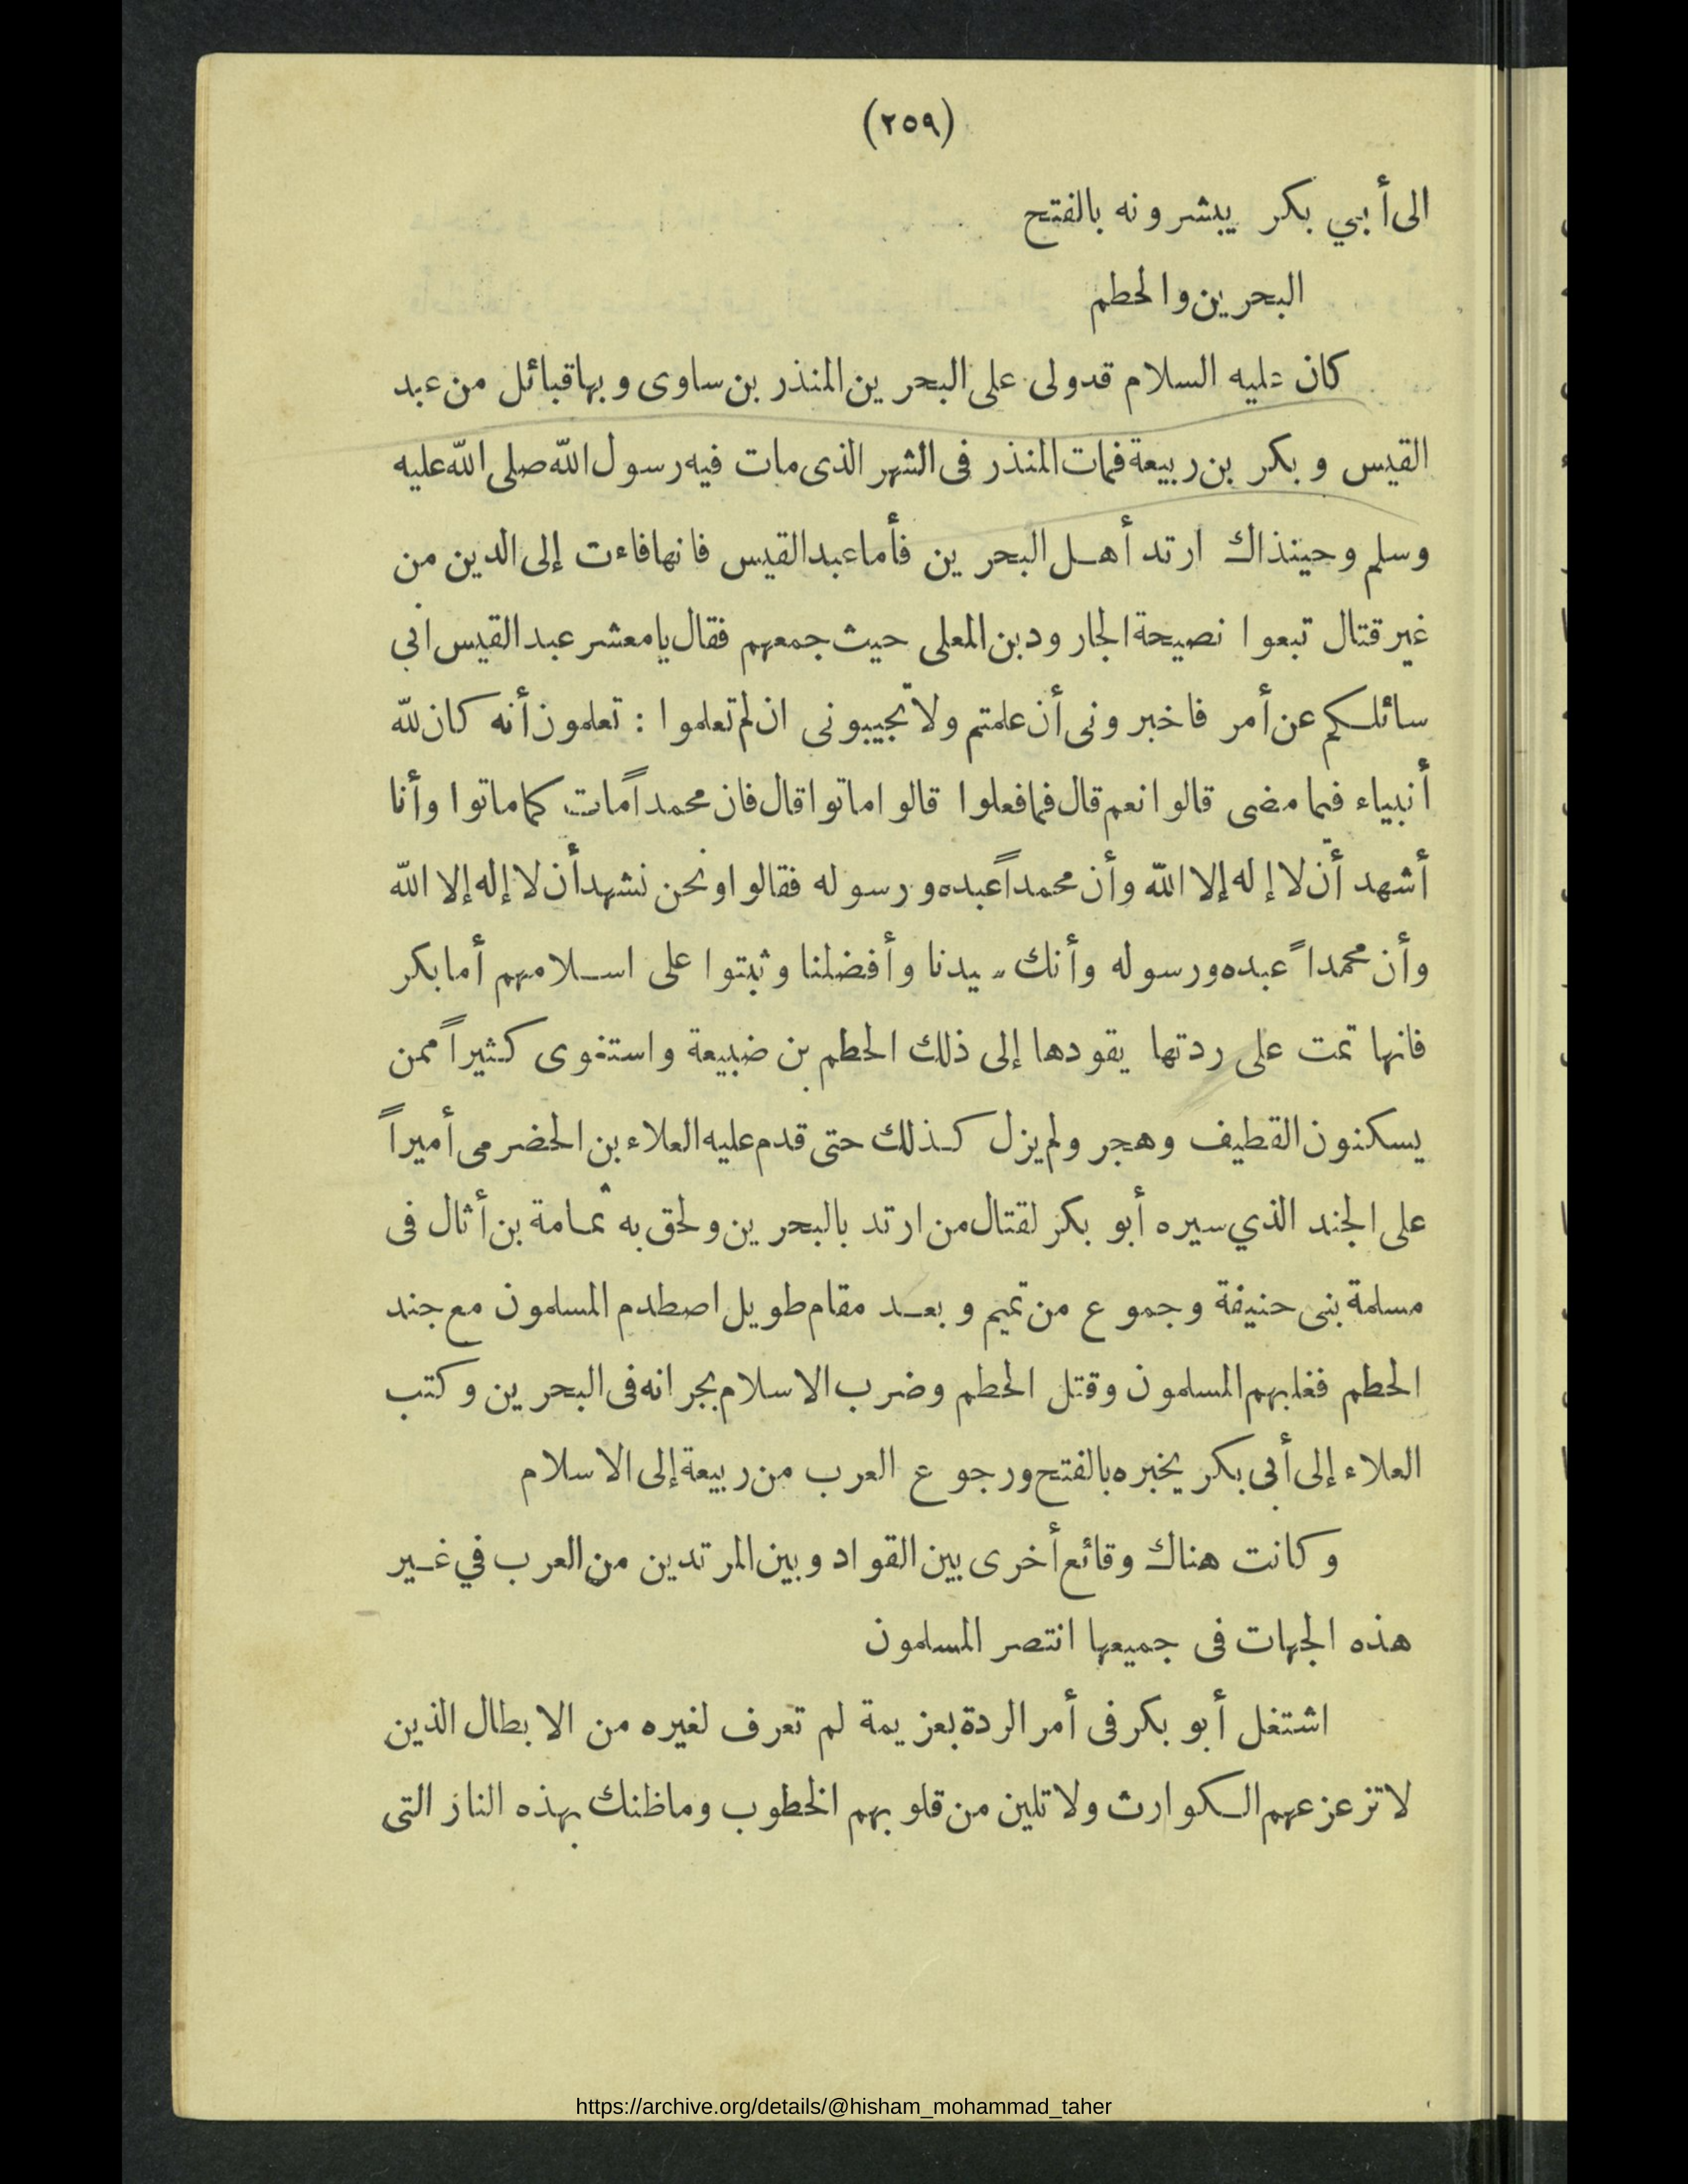 (٢٥٩)
الى أبي بكر يبشرونه بالفتح
البحرين والحطم
كان عليه السلام قد ولى على البحرين المنذر بن ساوى وبها قبائل من عبد
القيس وبكر بن ربيعة فمات المنذر فى الشهر الذى مات فيه رسول الله صلى الله عليه
وسلم وحينذاك ارتد أهل البحرين فأما عبد القيس فانها فاءت إلى الدين من
غير قتال تبعوا نصيحة الجارود بن المعلى حيث جمعهم فقال يا معشر عبد القيس انى
سائلكم عن أمر فاخبرونى أن علمتم ولا تجيبونى ان لم تعلموا : تعلمون أنه كان لله
أنبياء فيما مضى قالوا نعم قال فما فعلوا قالوا ماتوا قال فان محمداً مات كما ماتوا وأنا
أشهد أن لا إله إلا الله وأن محمداً عبده ورسوله فقالوا ونحن نشهد أن لا إله إلا الله
وأن محمداً عبده ورسوله وأنك سيدنا وأفضلنا وثبتوا على اسلامهم أما بكر
فانها تمت على ردتها يقودها إلى ذلك الحطم بن ضبيعة واستغوى كثيراً ممن
يسكنون القطيف وهجر ولم يزل كذلك حتى قدم عليه العلاء بن الحضرمى أميراً
على الجند الذي سيره أبو بكر لقتال من ارتد بالبحرين ولحق به ثمامة بن أثال فى
مسلمة بنى حنيفة وجموع من تميم وبعد مقام طويل اصطدم المسلمون مع جند
الحطم فغلبهم المسلمون وقتل الحطم وضرب الاسلام بجرانه فى البحرين وكتب
العلاء إلى أبى بكر يخبره بالفتح ورجوع العرب من ربيعة إلى الاسلام
وكانت هناك وقائع أخرى بين القواد وبين المرتدين من العرب في غير
هذه الجهات فى جميعها انتصر المسلمون
اشتغل أبو بكر فى أمر الردة بعزيمة لم تعرف لغيره من الابطال الذين
لا تزعزعهم الكوارث ولا تلين من قلوبهم الخطوب وما ظنك بهذه النار التى
https://archive.org/details/@hisham_mohammad_taher